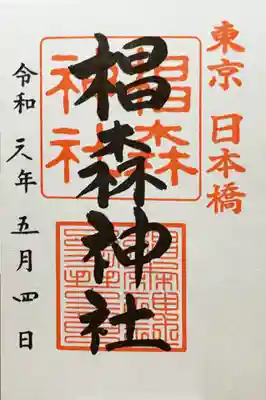 東京 日本橋
椙森神社
椙森
神社
令和元年 五月四日